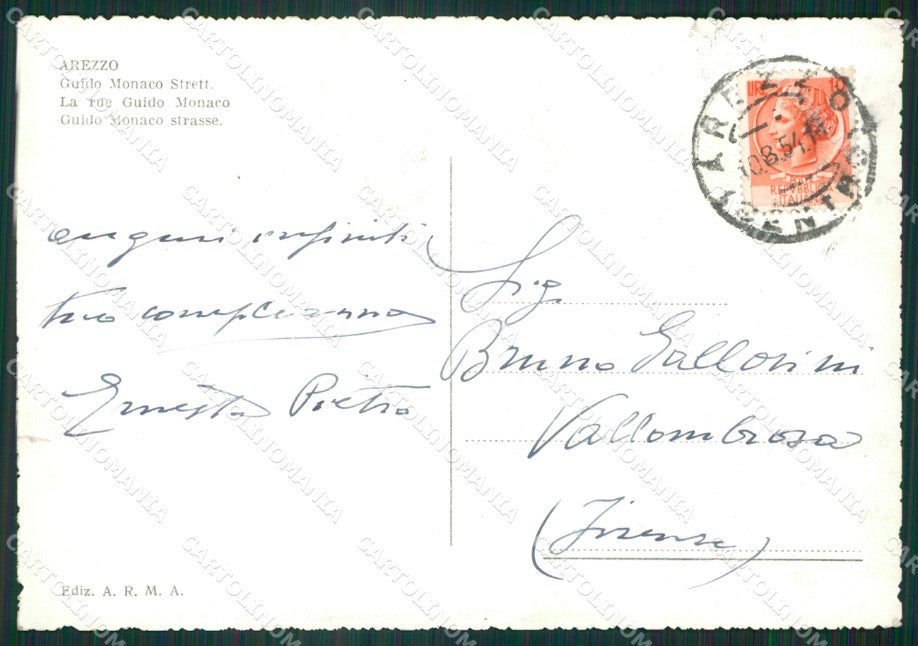 AREZZO
Guido Monaco Strett.
La rue Guido Monaco
Guido Monaco strasse.
LIRE 10
AREZZO
10.8.54.14
CENTRO
REPUBBLICA
ITALIANA
auguri infiniti
tuo compleanno
Ernesta Pietro
Sig.
Bruno Gallorini
Vallombrosa
(Firenze)
Ediz. A. R. M. A.
CARTOLINOMANIA